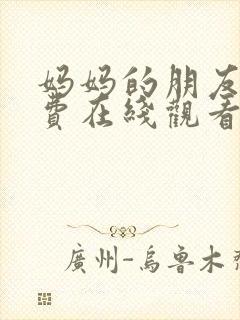 妈妈的朋友
費在綫觀看
廣州-烏魯木